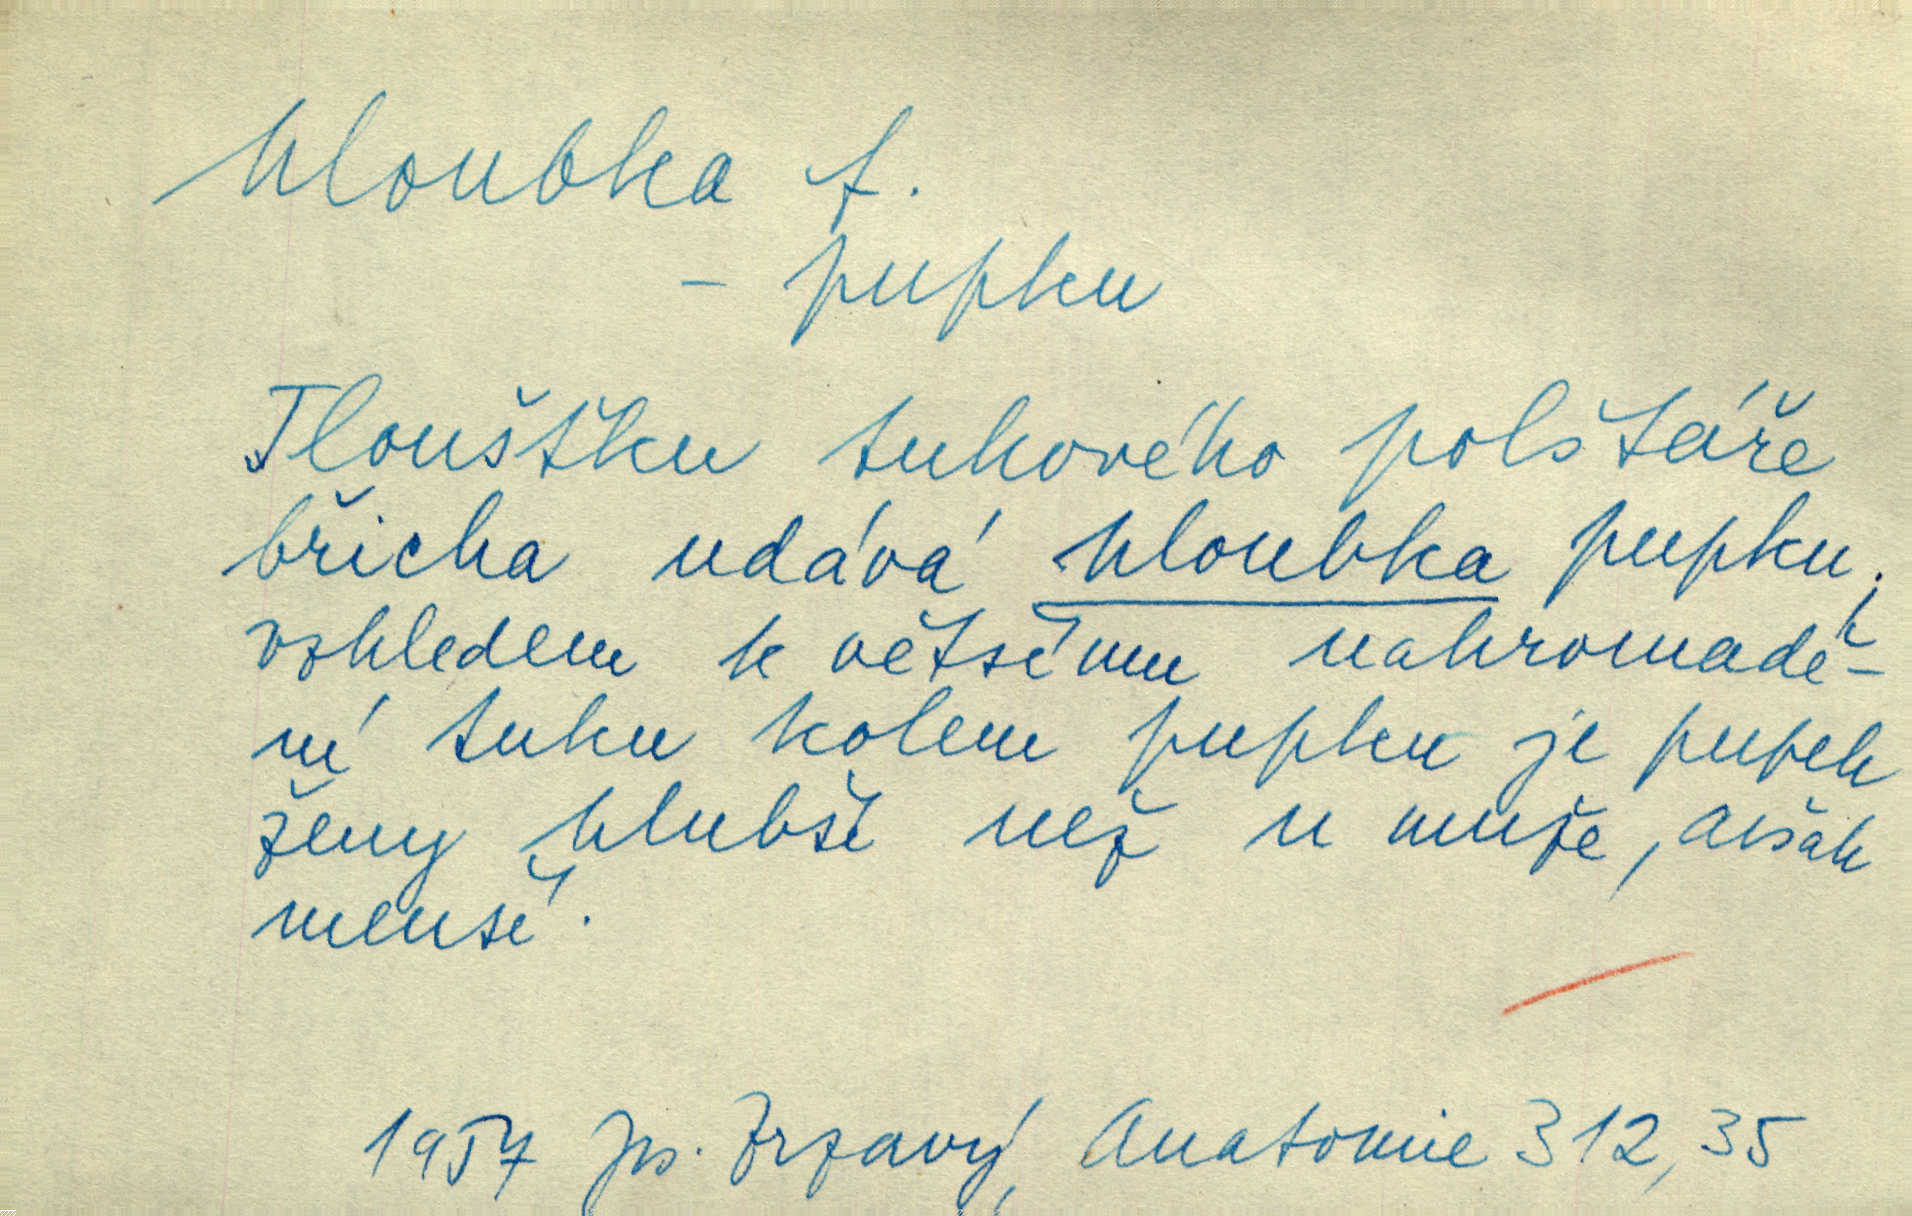 hloubka f.
- pupku
Tloušťku tukového polštáře
břicha udává hloubka pupku;
vzhledem k většímu nahromadě-
ní tuku kolem pupku je pupek
ženy hlubší než u muže, avšak
menší.
1957 Js. Zrzavý, Anatomie 312,35